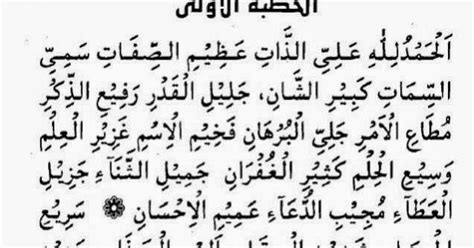 الخطبة الأولى
اَلْحَمْدُ لِلّٰهِ عَلِيِّ الذَّاتِ عَظِيْمِ الصِّفَاتِ سَمِيِّ
السِّمَاتِ كَبِيْرِ الشَّانِ، جَلِيْلِ الْقَدْرِ رَفِيْعِ الذِّكْرِ
مُطَاعِ الْاَمْرِ جَلِيِّ الْبُرْهَانِ فَخِيْمِ الْاِسْمِ غَزِيْرِ الْعِلْمِ
وَسِيْعِ الْحِلْمِ كَثِيْرِ الْغُفْرَانِ جَمِيْلِ الثَّنَآءِ جَزِيْلِ
الْعَطَآءِ مُجِيْبِ الدُّعَآءِ عَمِيْمِ الْاِحْسَانِ ۞ سَرِيْعِ